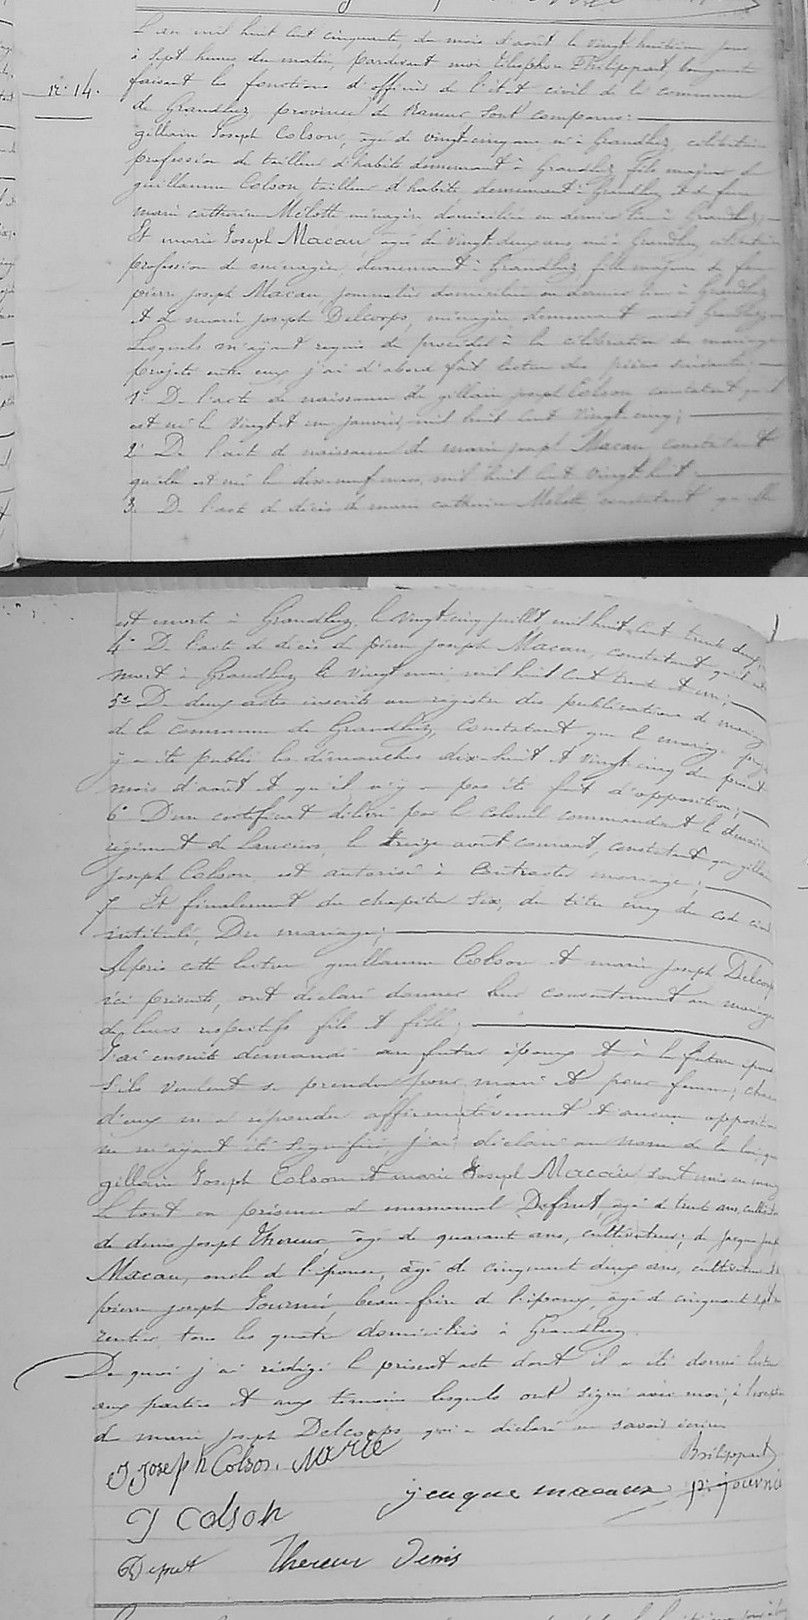 L'an mil huit cent cinquante, du mois d'août le vingt huitième jour
à sept heures du matin, pardevant moi Philippart, bourgmestre
n: 14. faisant les fonctions d'officier de l'état civil de la commune
de Grandlez, province de Namur sont comparus:
gillain Joseph Colson, âgé de vingt cinq ans, né à Grandlez, célibataire
profession de tailleur d'habits demeurant à Grandlez fils majeur de
guillaume Colson, tailleur d'habits demeurant à Grandlez et de feue
marie catherine Mélotte ménagère domiciliée en dernier lieu à Grandlez;
Et marie Joseph Macau âgé de vingt deux ans, née à Grandlez célibataire
profession de ménagère, demeurant à Grandlez fille majeure de feu
pierre joseph Macau journalier domicilié en dernier lieu à Grandlez
et de marie joseph Delcorps, ménagère, demeurant audit Grandlez
Lesquels m'ayant requis de procéder à la célébration du mariage
projeté entre eux j'ai d'abord fait lecture des pièces suivantes:
1° De l'acte de naissance de gillain joseph Colson constatant qu'il
est né le vingt et un janvier mil huit cent vingt cinq;
2° De l'acte de naissance de marie joseph Macau constatant
qu'elle est née le dix-neuf mars, mil huit cent vingt huit
3° De l'acte de décès de marie catherine Melotte constatant qu'elle
est morte à Grandlez, le vingt cinq juillet mil huit cent trente deux
4° De l'acte de décès de pierre joseph Macau, constatant qu'il est
mort à Grandlez le vingt mai mil huit cent trente et un;
5° De deux actes inscrits au registre des publications de mariage
de la commune de Grandlez, constatant que le mariage projeté
y a été publié les dimanches dix-huit et vingt cinq du présent
mois d'août et qu'il n'y a pas été fait d'opposition;
6° D'un certificat délivré par le colonel commandant le deuxième
régiment de lanciers, le treize août courant, constatant que gillain
joseph Colson est autorisé à contracter mariage;
7° Et finalement du chapitre six, du titre cinq du code civil
intitulé, Du mariage;
Après cette lecture guillaume Colson et marie joseph Delcorps
ici présents, ont déclaré donner leur consentement au mariage
de leurs respectifs fils et fille;
J'ai ensuite demandé au futur époux et à la future épouse
s'ils veulent se prendre pour mari et pour femme; chacun
d'eux m'a répondu affirmativement et aucune opposition
ne m'ayant été signifiée, j'ai déclaré au nom de la loi, que
gillain Joseph Colson et marie Joseph Macau sont unis en mariage
Le tout en présence de emmanuel Defnet, âgé de trente ans, cultivateur
de denis joseph Thereur, âgé de quarante ans, cultivateur; de jacques joseph
Macau, oncle de l'épouse, âgé de cinquante deux ans, cultivateur et
pierre joseph Journée beau-frère de l'époux, âgé de cinquante sept ans
rentier, tous les quatre domiciliés à Grandlez
De quoi j'ai rédigé le présent acte dont il a été donné lecture
aux parties et aux témoins lesquels ont signé avec moi, à l'exception
de marie joseph Delcorps qui a déclaré ne savoir écrire
J Joseph Colson. Marie Philippart
J Colson jeuque macaux p: journée
Defnet Thereur Denis